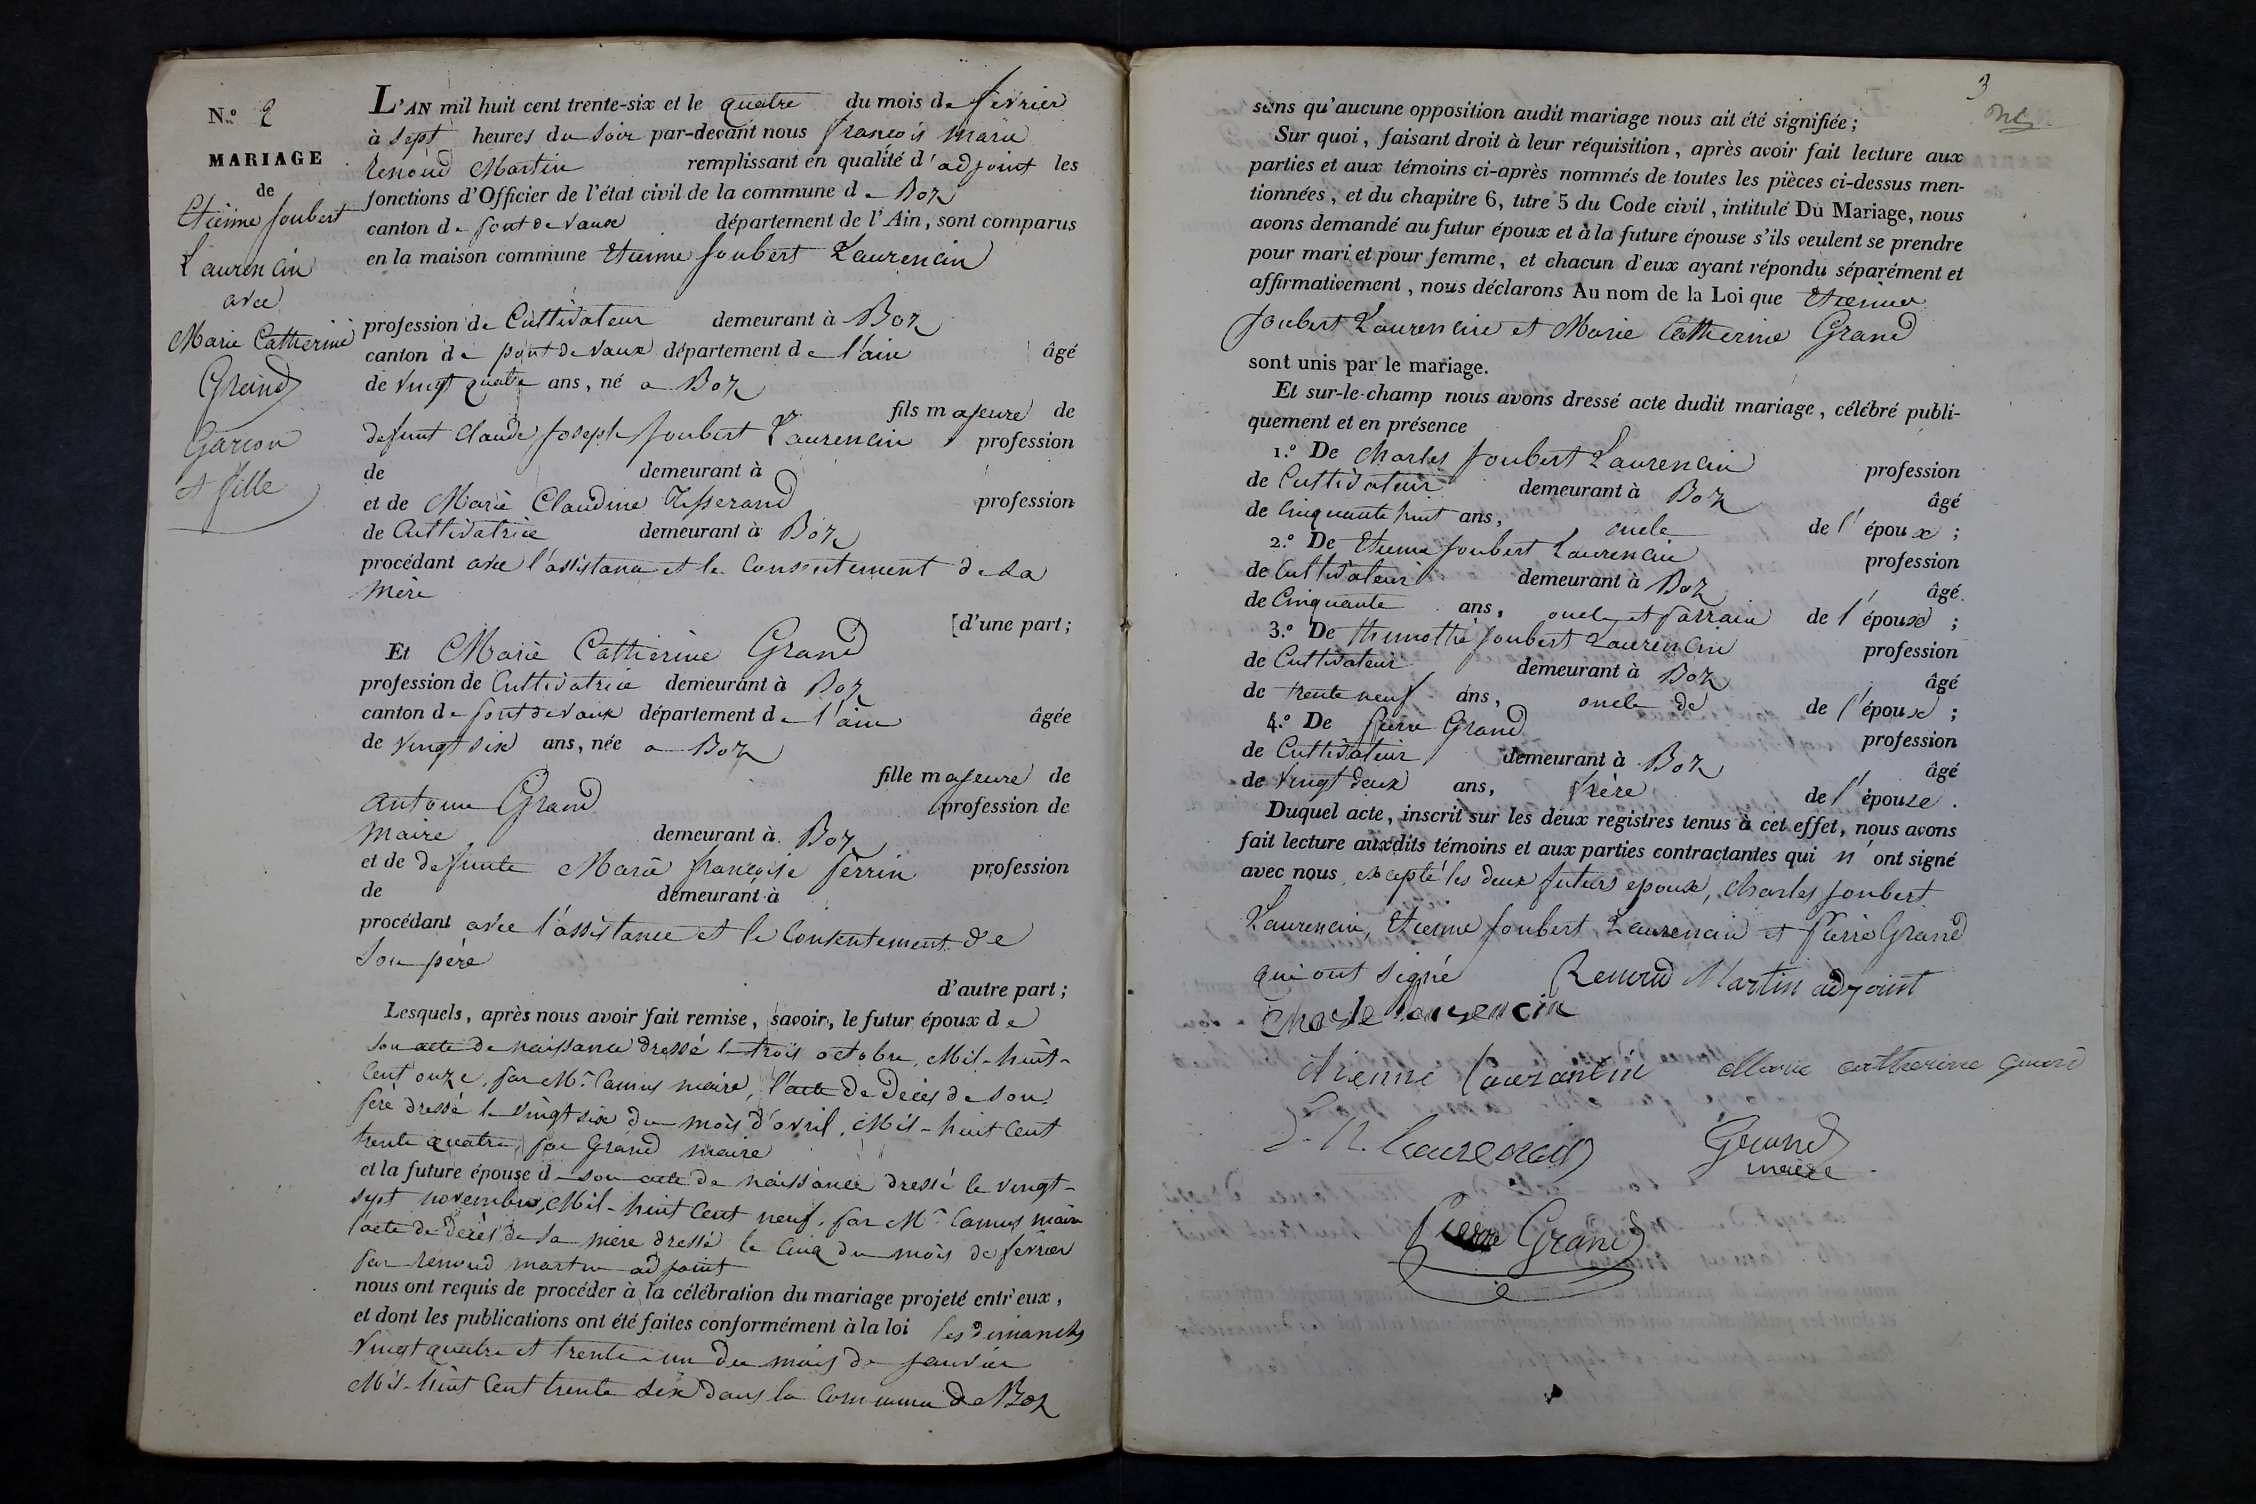 N.o 2
MARIAGE
de
Etienne Joubert
Laurencin
avec
Marie Catherine
Grand
Garcon
et fille
L'AN mil huit cent trente-six et le quatre du mois de fevrier
à sept heures du soir par-devant nous françois marie
Renoud Martin remplissant en qualité d'adjoint les
fonctions d'Officier de l'état civil de la commune de Boz
canton de pont de vaux département de l'Ain, sont comparus
en la maison commune Etienne Joubert Laurencin
profession de Cultivateur demeurant à Boz
canton de pont de vaux département de l'ain âgé
de vingt quatre ans, né a Boz
fils majeure de
defunt Claude Joseph Joubert Laurencin profession
de demeurant à
et de Marie Claudine Tisserand profession
de Cultivatrice demeurant à Boz
procédant avec l'assistance et le consentement de sa
mère
[d'une part;
Et Marie Catherine Grand
profession de Cultivatrice demeurant à Boz
canton de pont de vaux département de l'ain âgée
de vingt six ans, née a Boz
fille majeure de
antoine Grand profession de
maire demeurant à Boz
et de defunte Marie françoise perrin profession
de demeurant à
procédant avec l'assistance et le consentement de
son père
d'autre part;
Lesquels, après nous avoir fait remise, savoir, le futur époux de
son acte de naissance dressé le trois octobre, Mil-huit-
cent onze, par Mr. Camus maire, l'acte de Décés de son
père dressé le vingt six du mois d'avril, Mil-huit cent
trente quatre, par Grand maire
et la future épouse de son acte de naissance dressé le vingt-
sept novembre, Mil-huit cent neuf, par Mr. Camus maire
l'acte de décès de sa mère dressé le cinq du mois de fevrier
par renoud martin adjoint
nous ont requis de procéder à la célébration du mariage projeté entr'eux,
et dont les publications ont été faites conformément à la loi les dimanches
vingt quatre et trente-un du mois de janvier
Mil-huit cent trente six dans la commune de Boz
3
sans qu'aucune opposition audit mariage nous ait été signifiée;
Sur quoi, faisant droit à leur réquisition, après avoir fait lecture aux
parties et aux témoins ci-après nommés de toutes les pièces ci-dessus men-
tionnées, et du chapitre 6, titre 5 du Code civil, intitulé Du Mariage, nous
avons demandé au futur époux et à la future épouse s'ils veulent se prendre
pour mari et pour femme, et chacun d'eux ayant répondu séparément et
affirmativement, nous déclarons Au nom de la Loi que Etienne
Joubert Laurencin et Marie Catherine Grand
sont unis par le mariage.
Et sur-le-champ nous avons dressé acte dudit mariage, célébré publi-
quement et en présence
1.o De Charles Joubert Laurencin profession
de Cultivateur demeurant à Boz âgé
de Cinquante huit ans, oncle de l'époux;
2.o De Etienne Joubert Laurencin profession
de Cultivateur demeurant à Boz âgé
de Cinquante ans, oncle et parrain de l'époux;
3.o De thimothé Joubert Laurencin profession
de Cultivateur demeurant à Boz âgé
de trente neuf ans, oncle de de l'époux;
4.o De pierre Grand profession
de Cultivateur demeurant à Boz âgé
de vingt deux ans, frère de l'épouze.
Duquel acte, inscrit sur les deux registres tenus à cet effet, nous avons
fait lecture auxdits témoins et aux parties contractantes qui n'ont signé
avec nous excepté les deux futurs epoux, Charles Joubert
Laurencin, Etienne Joubert Laurencin et Pierre Grand
qui ont signé Renoud Martin adjoint
Charle Laurencin
etienne Laurantin Marie catherine Grand
Laurencin Grand
maire
Pierre Grand